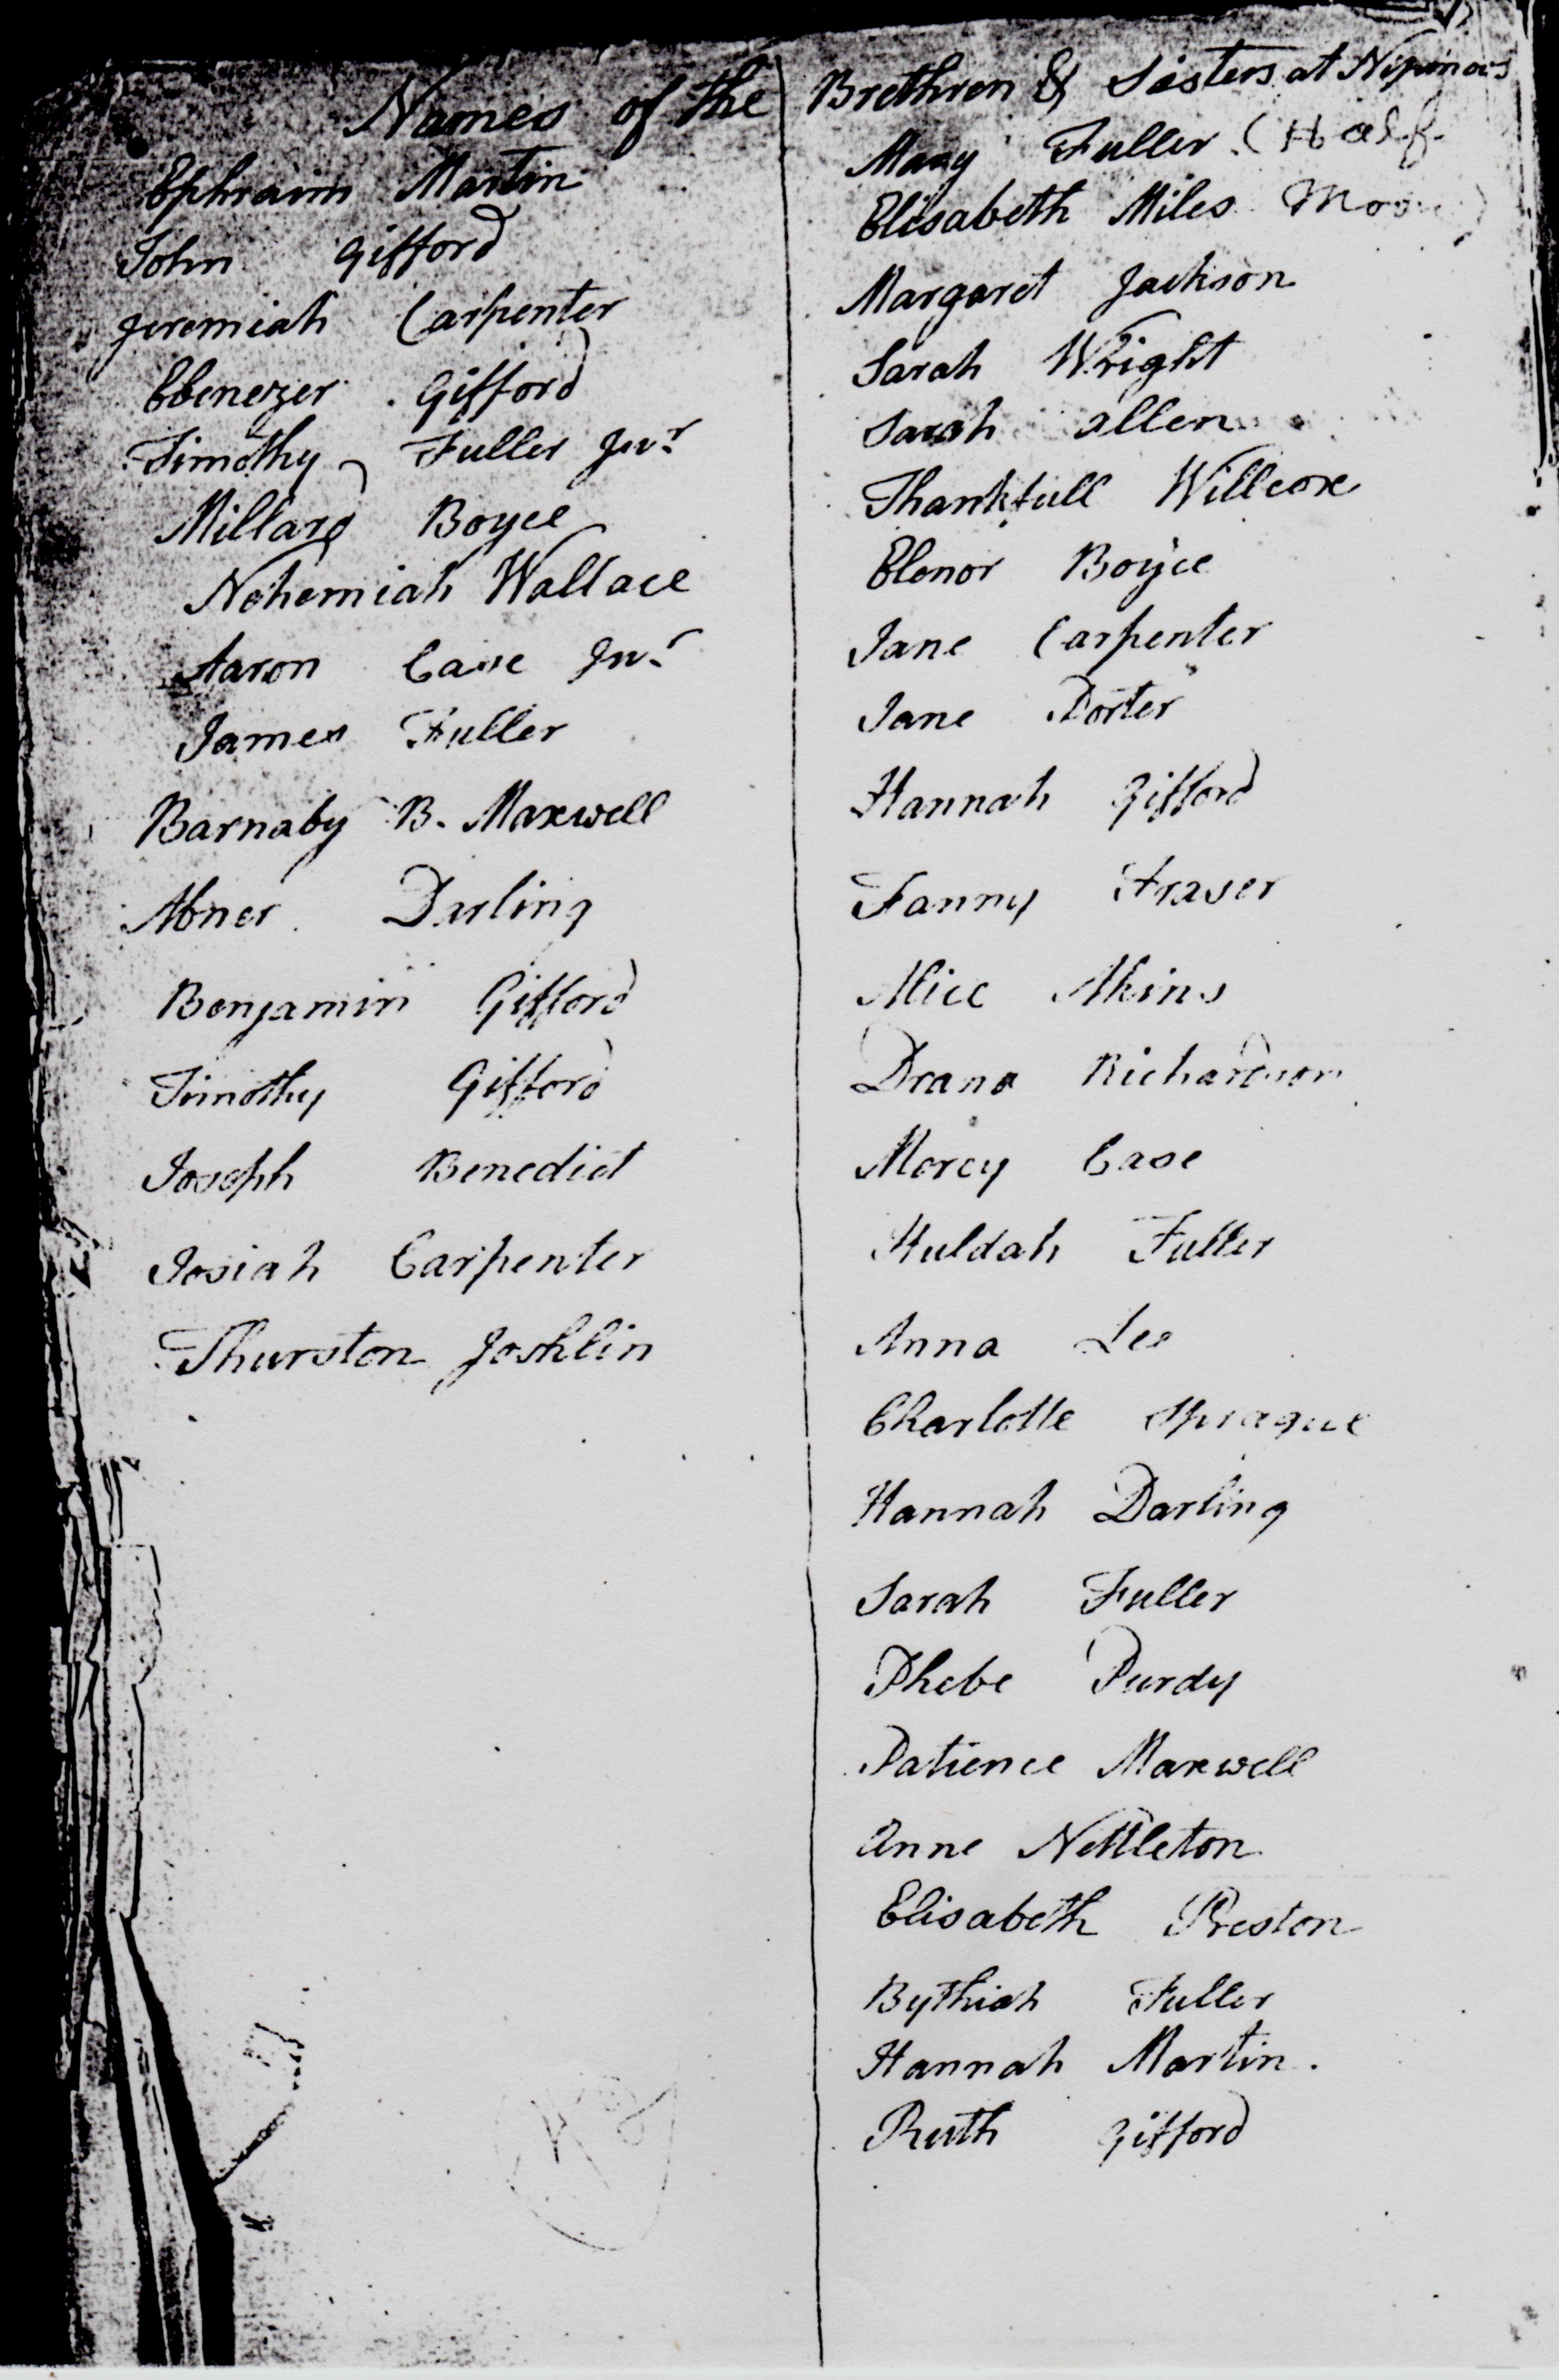 Names of the Brethren & Sisters at
Ephraim Martin
John Gifford
Jeremiah Carpenter
Ebenezer Gifford
Timothy Fuller Junr
Millard Boyce
Nehemiah Wallace
Aaron Case Junr
James Fuller
Barnaby B. Maxwell
Abner Darling
Benjamin Gifford
Timothy Gifford
Joseph Benedict
Josiah Carpenter
Thurston Joshlin
Mary Fuller (Half
Elisabeth Miles Moon)
Margaret Jackson
Sarah Wright
Sarah Allen
Thankfull Willcox
Elenor Boyce
Jane Carpenter
Jane Porter
Hannah Gifford
Fanny Fraser
Alice Akins
Diana Richardson
Mercy Case
Huldah Fuller
Anna Lee
Charlotte Sprague
Hannah Darling
Sarah Fuller
Phebe Purdy
Patience Maxwell
Anne Nettleton
Elisabeth Preston
Bythiah Fuller
Hannah Martin.
Ruth Gifford